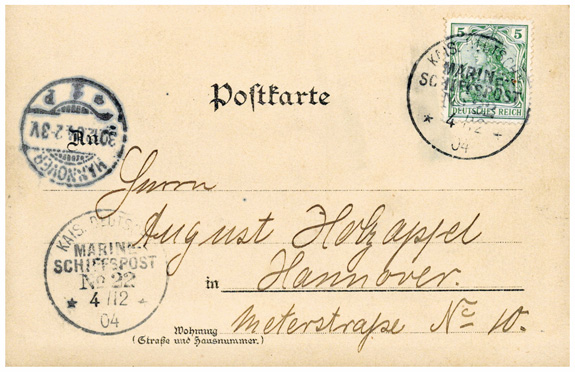 5 5
DEUTSCHES REICH
KAIS. DEUTSCHE
MARINE-
SCHIFFSPOST
* 4/12 -
04
Postkarte
HANNOVER
* 1 P
2-3V.
An
Herrn
August Holzapfel
in Hannover.
Meterstraße No 10.
Wohnung
(Straße und Hausnummer.)
KAIS. DEUTSCHE
MARINE-
SCHIFFSPOST
No 22
* 4/12 -
04